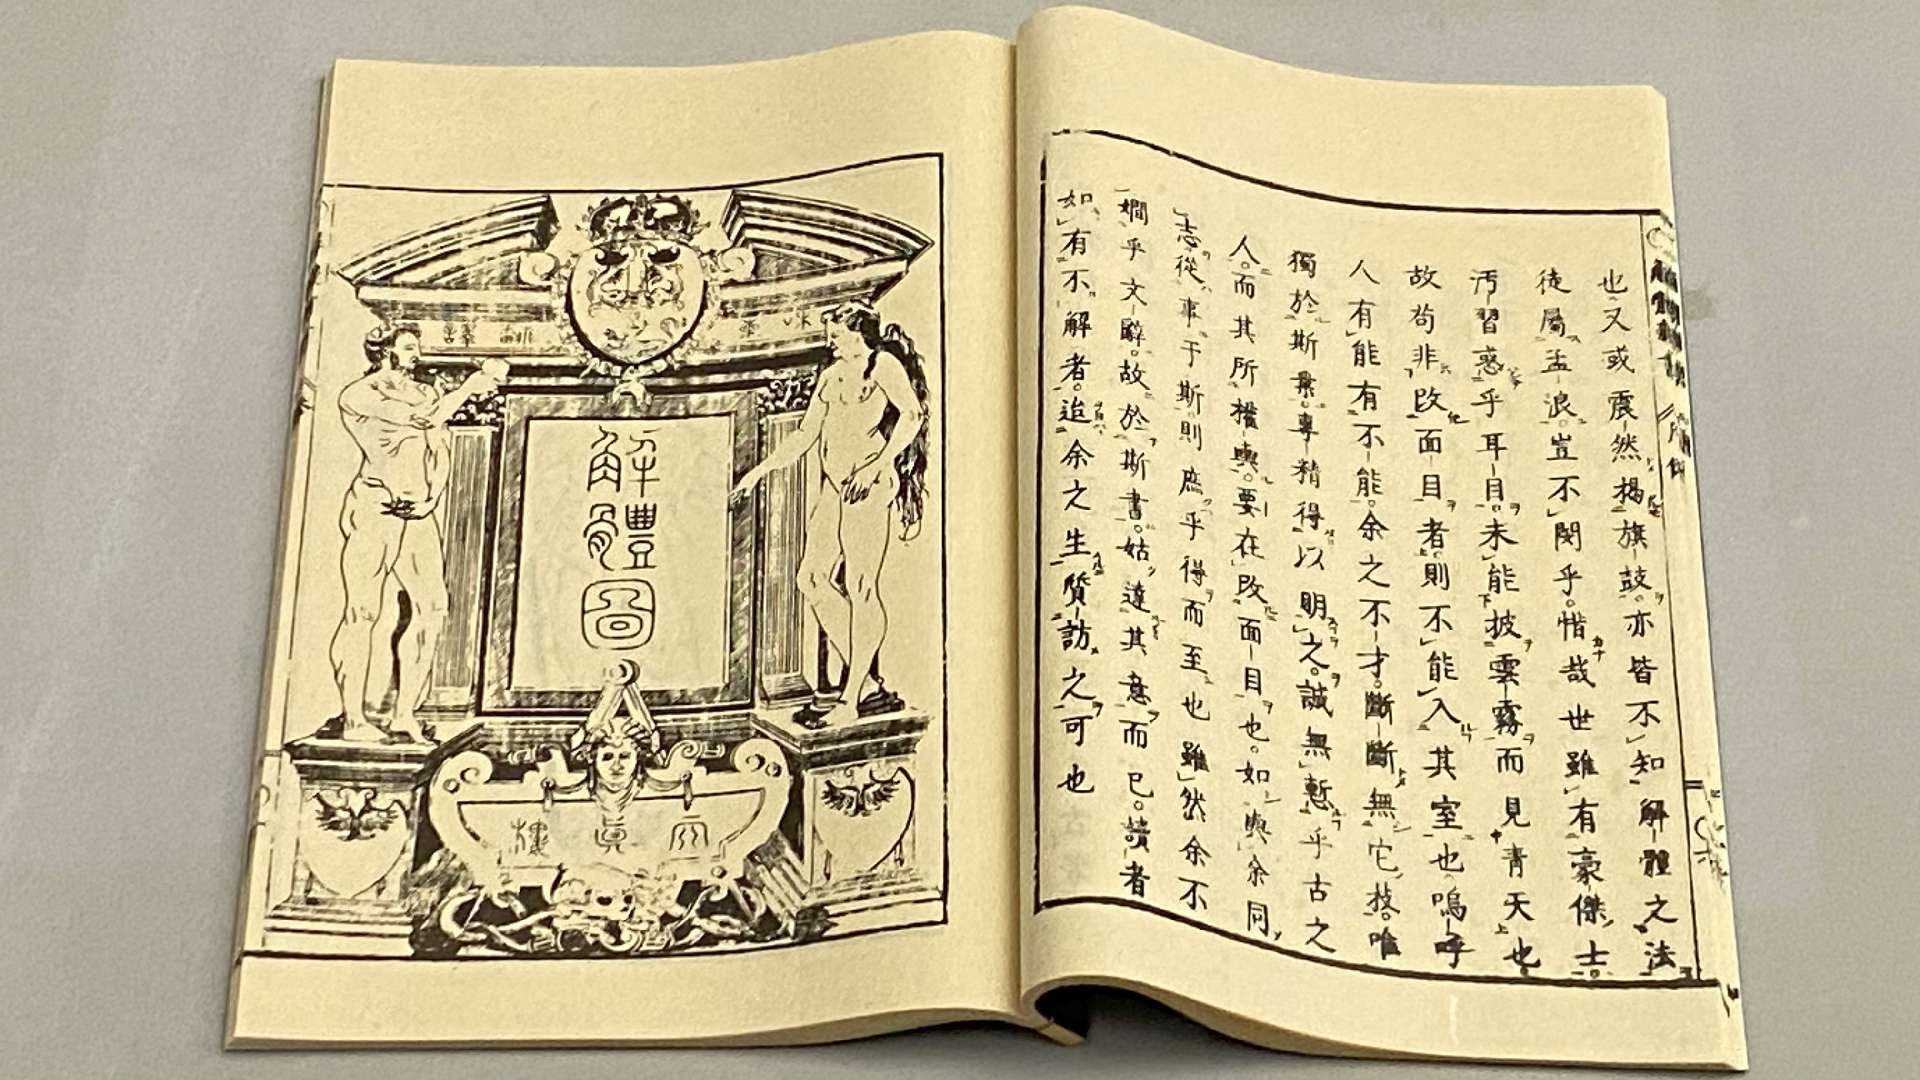 也又或震然揭旗鼓。亦皆不知解體之法
徒屬孟浪。豈不閔乎。惜哉世雖有豪傑士。
汚習惑乎耳目。未能披雲霧而見青天也。
故苟非改面目者。則不能入其室也嗚呼
人有能有不能。余之不才。斷斷無它技。唯
獨於斯業。專精得以明之。誠無慙乎古之
人。而其所權輿。要在改面目也。如與余同
志。從事于斯則庶乎得而至也雖然余不
嫺乎文辭。故於斯書。姑達其意而已。讀者
如有不解者。迨余之生質訪之可也
解體圖